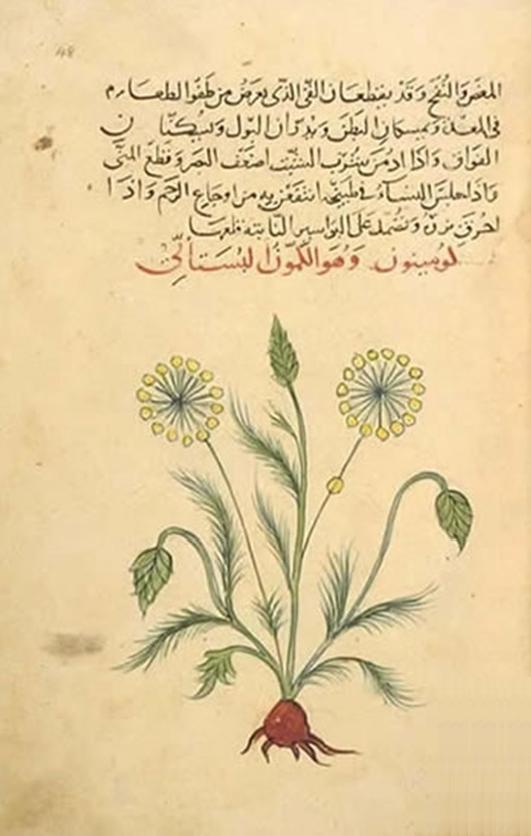 المغص والنفخ وقد يقطعان القئ الذى يعرض من طفو الطعام
فى المعدة ويمسكان البطن ويدران البول ويسكنان
الفواق واذا ادمن شرب الشبث اضعف البصر وقطع المنى
واذا جلس النساء فى طبيخه انتفعن به من اوجاع الرحم واذا
احرق بزره وتضمد على البواسير النابتة قلعها
لومينون وهو الكمون البستانى